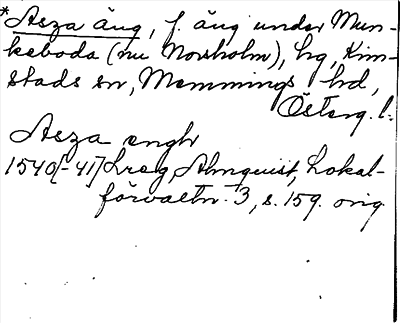 *Asza äng, f. äng under Mun-
keboda (nu Norsholm), hg, Kim-
stads sn, Memmings hd,
Österg. l.
Asza engh
1540[-41] Lreg, Almquist, Lokal-
förvaltn. 3, s. 159. orig.